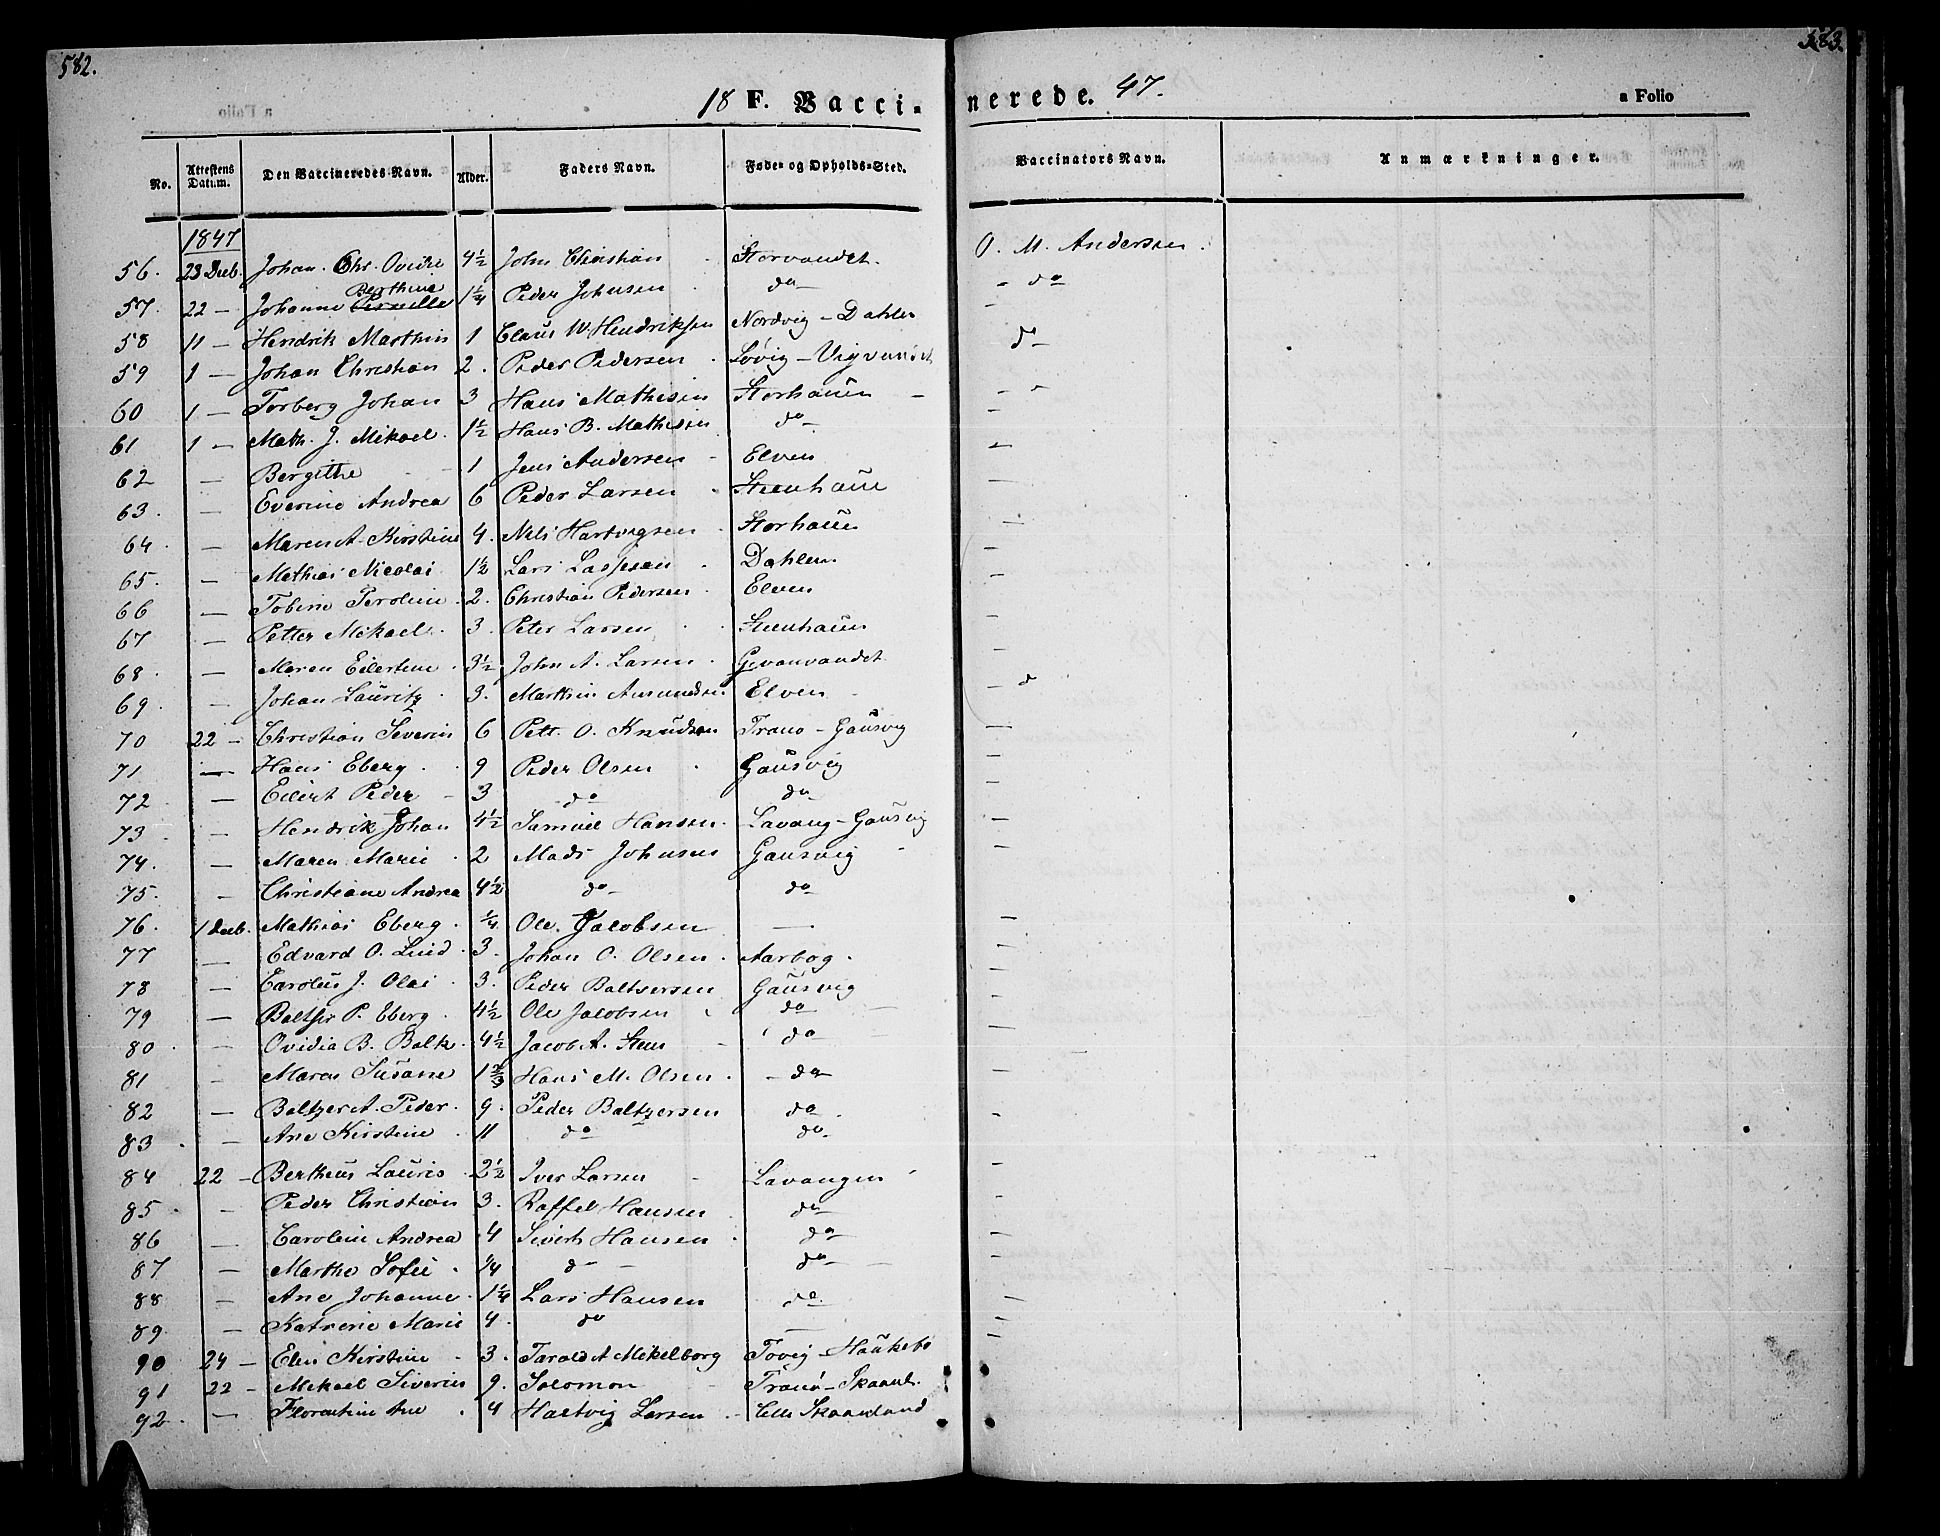 582.
583.
18 F. Vaccinerede. 47.
a Folio
No. Attestens Datum. Den Vaccineredes Navn. Alder. Faders Navn. Føde- og Opholds-Sted. Vaccinators Navn. Anmærkninger.
1847
56. 23 Decb. Johan. Chr. Ovidie 4½ John Christian Storvandet. O. M. Andersen.
57. 22 — Johanne Berthine Pernille 1¼ Peder Johnsen do — do
58 11 — Hendrik Marthin 1 Claus W. Hendriksen Nordvig - Dahlen do
59 1 — Johan Christian 2. Peder Pedersen Løvig - Vigvandet
60 1 — Torberg Johan 3 Hans Mathisen Storhauen
61 1 — Math. J. Mikael. 1½ Hans B. Mathisen do
62 — Bergithe 1 Jens Andersen Elven
63. — Everine Andrea 6 Peder Larsen Steenhaue
64. — Maren A. Kirstine 4. Nils Hartvigsen Storhauen
65. — Mathias Nicolai 1½ Lars Lassesen Dahlen
66 — Tobine Peroline 2. Christian Pedersen Elven
67 — Petter Mikael. 3. Peter Larsen Steenhauen
68. — Maren Eilertine 3½ John A. Larsen Gevanvandet
69. — Johan Lauritz 3. Marthin Amundsen Elven
70 22 — Christian Severin 6 Pett. O. Knudsen Tranø - Gausvig
71 — Hans Eberg 9 Peder Olsen Gausvig
72. — Eilert Peder 3 do do
73 — Hendrik Johan 4½ Samuel Hansen Lavang - Gausvig
74. — Maren Marie 2 Mads Johnsen Gausvig
75. — Christiane Andrea 4½ do do
76. 1 Decb. Mathias Eberg. ¼ Ole Jacobsen —
77 — Edvard O. Luid 3. Johan O. Olsen Aarbog.
78 — Carolus J. Olai 3. Peder Baltsersen Gausvig
79 — Baltser P. Eberg. 4½ Ole Jacobsen do
80. — Ovidia B. Balk. 4½ Jacob A. Steen do
81 — Maren Susane 1⅔ Hans M. Olsen do
82 — Baltzer A. Peder. 9. Peder Baltzersen do
83. — Ane Kirstine 11 do do
84 22 — Bertheus Lauris 2½ Iver Larsen Lavangen
85. — Peder Christian 3. Raffel Hansen do
86 — Caroline Andrea 4 Sivert Hansen do
87 — Marthe Sofie ¼ do do
88 — Ane Johanne 1¼ Lars Hansen do
89. — Katrine Marie 4. do —
90 24 — Elen Kirstine 3. Tarald A Mikelborg Tovig - Haukebø
91 22 — Mikael Siverin 9. Solomon Tranø - Skaanl.
92. — Florentine Ane 4 Hartvig Larsen Skaanland